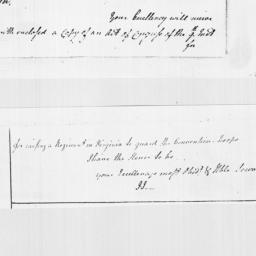 Your Excellency will receive
with enclosed a Copy of an Act of Congress of the 9th Inst
for
for raising a Regiment in Virginia to guard the Convention Troops
I have the Honor to be
your Excellencys most Obedt & Hble Servt